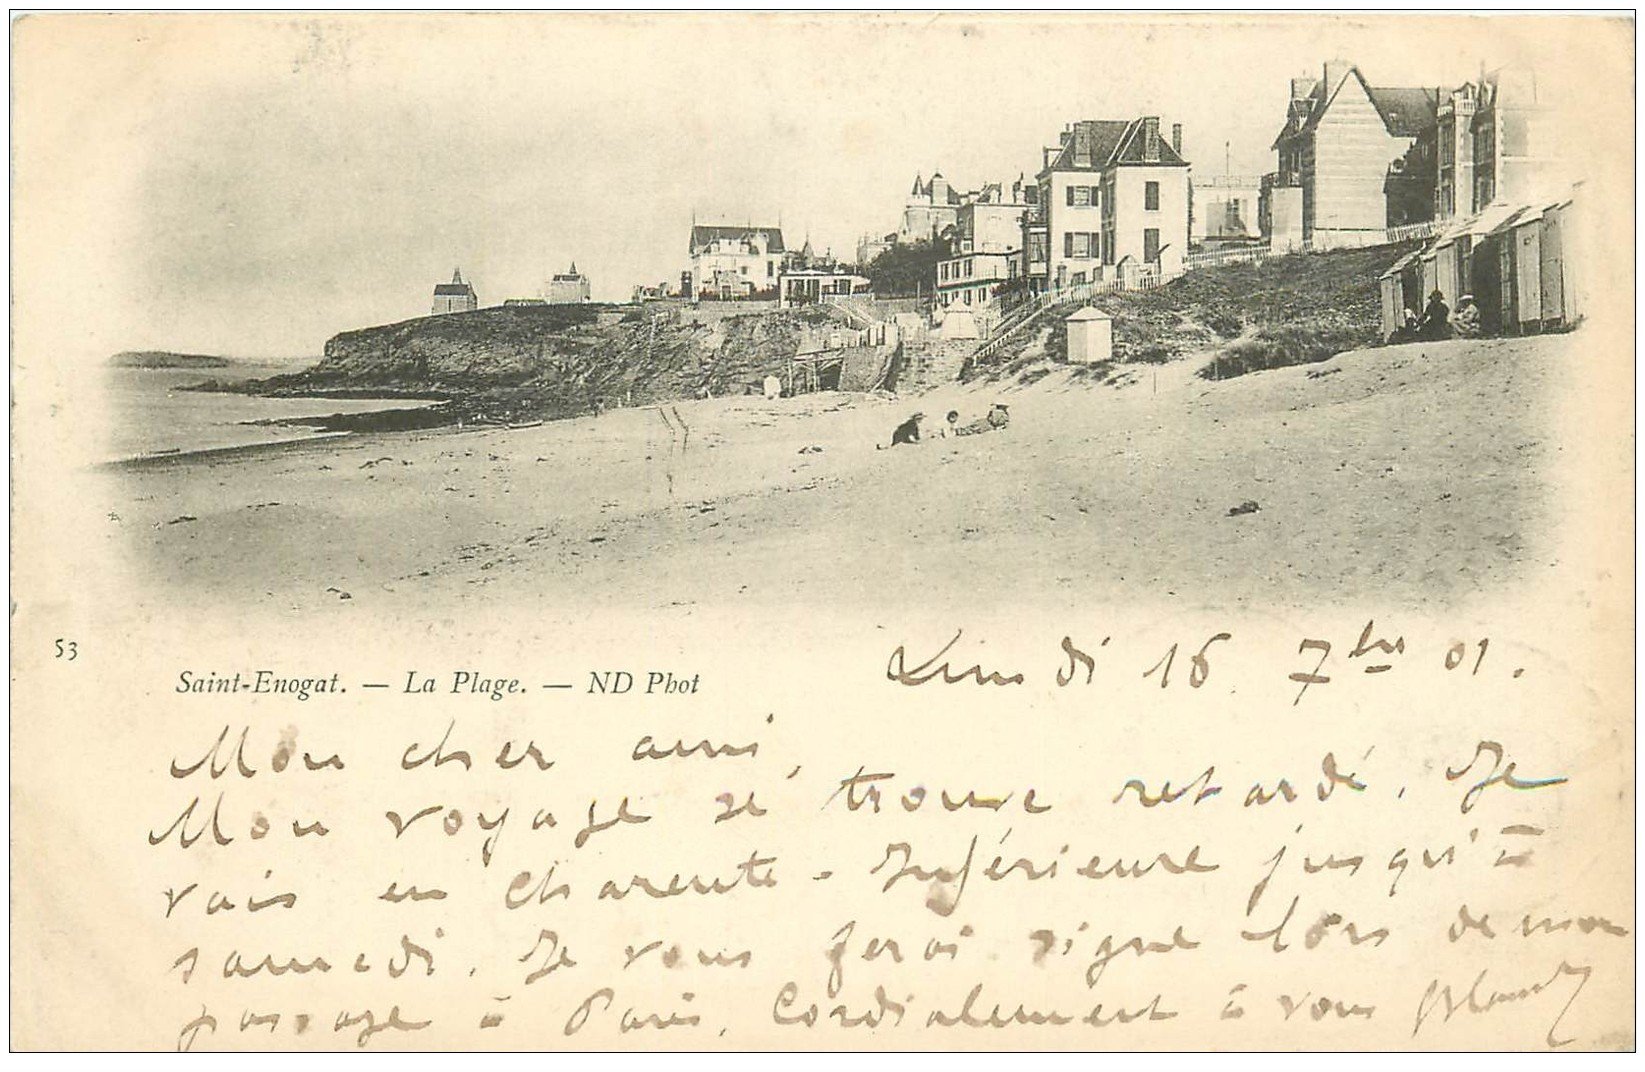 53
Saint-Enogat. — La Plage. — ND Phot
Lundi 16 7bre 01.
Mon cher ami,
Mon voyage se trouve retardé. Je
vais en Charente-Inférieure jusqu'à
samedi. Je vous ferai signe lors de mon
passage à Paris. Cordialement à vous